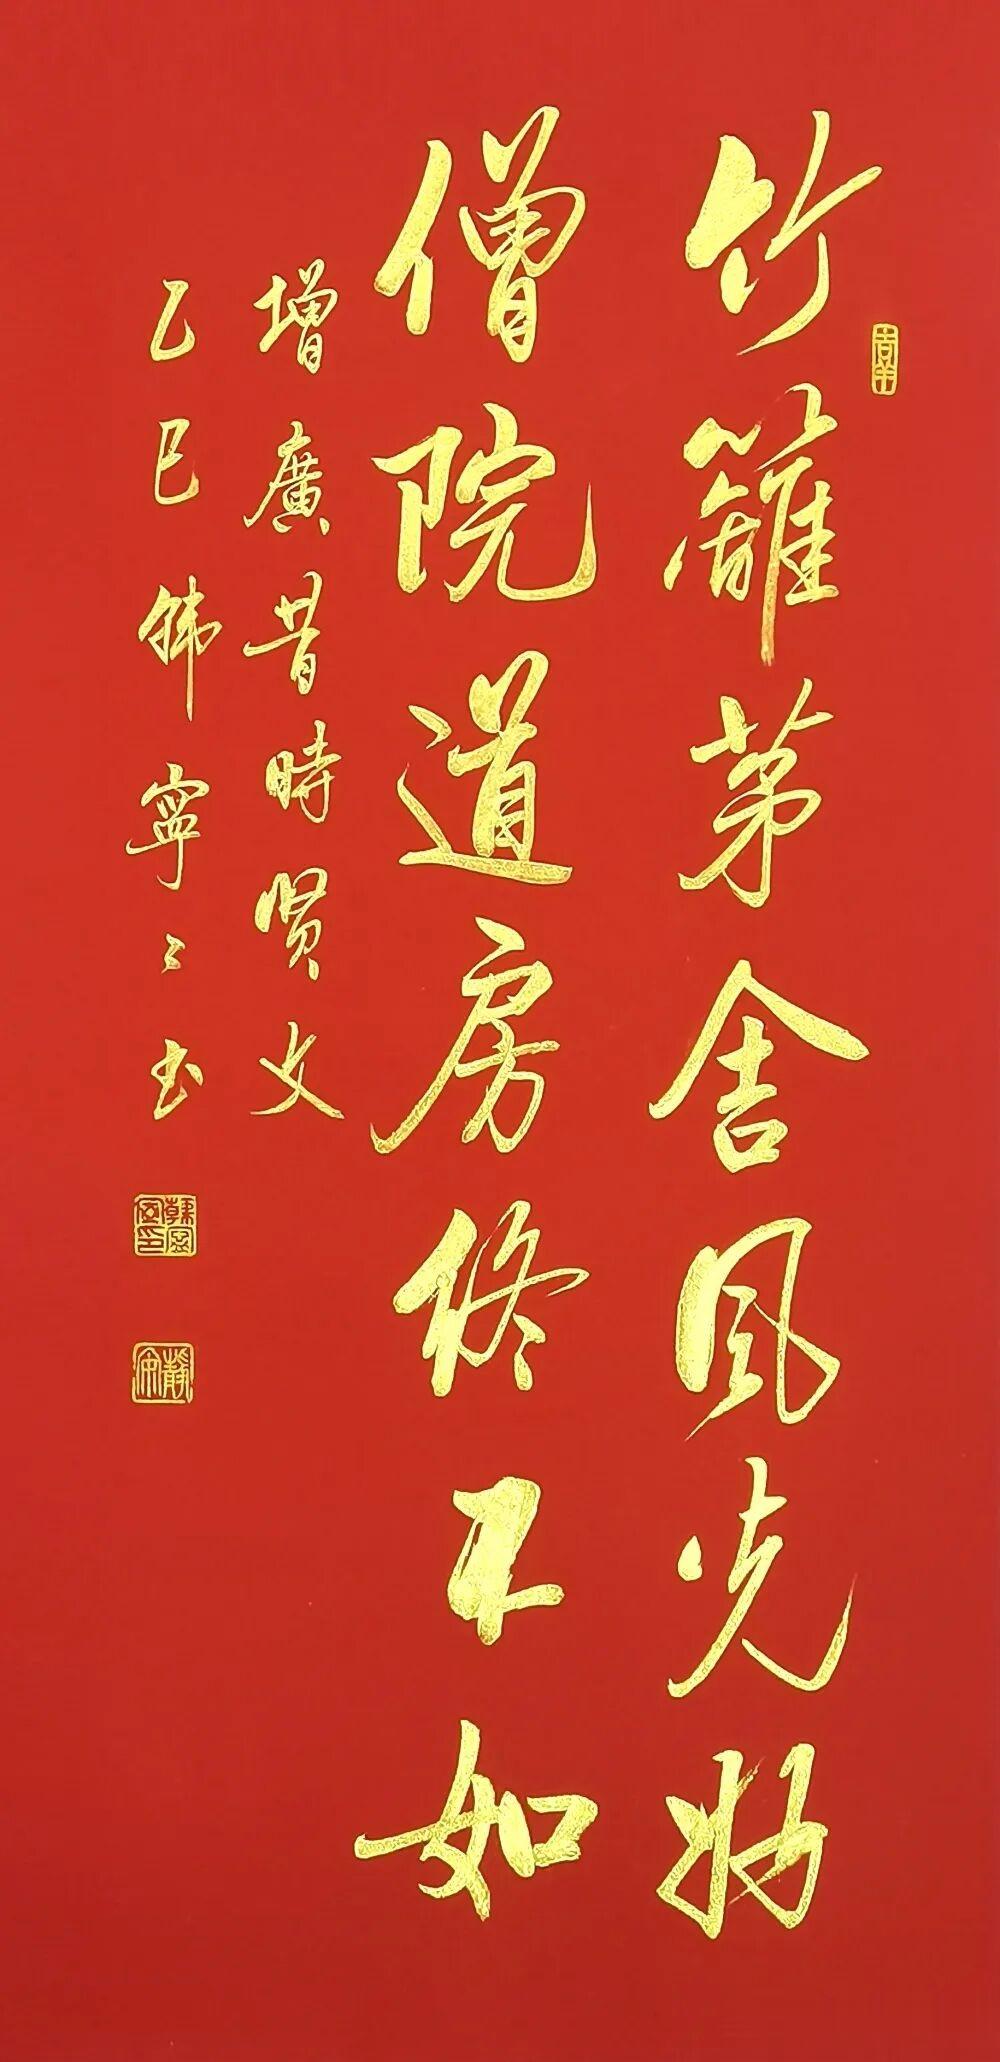 竹籬茅舍風光好
僧院道房终不如
增廣昔時賢文
乙巳韩寧々书